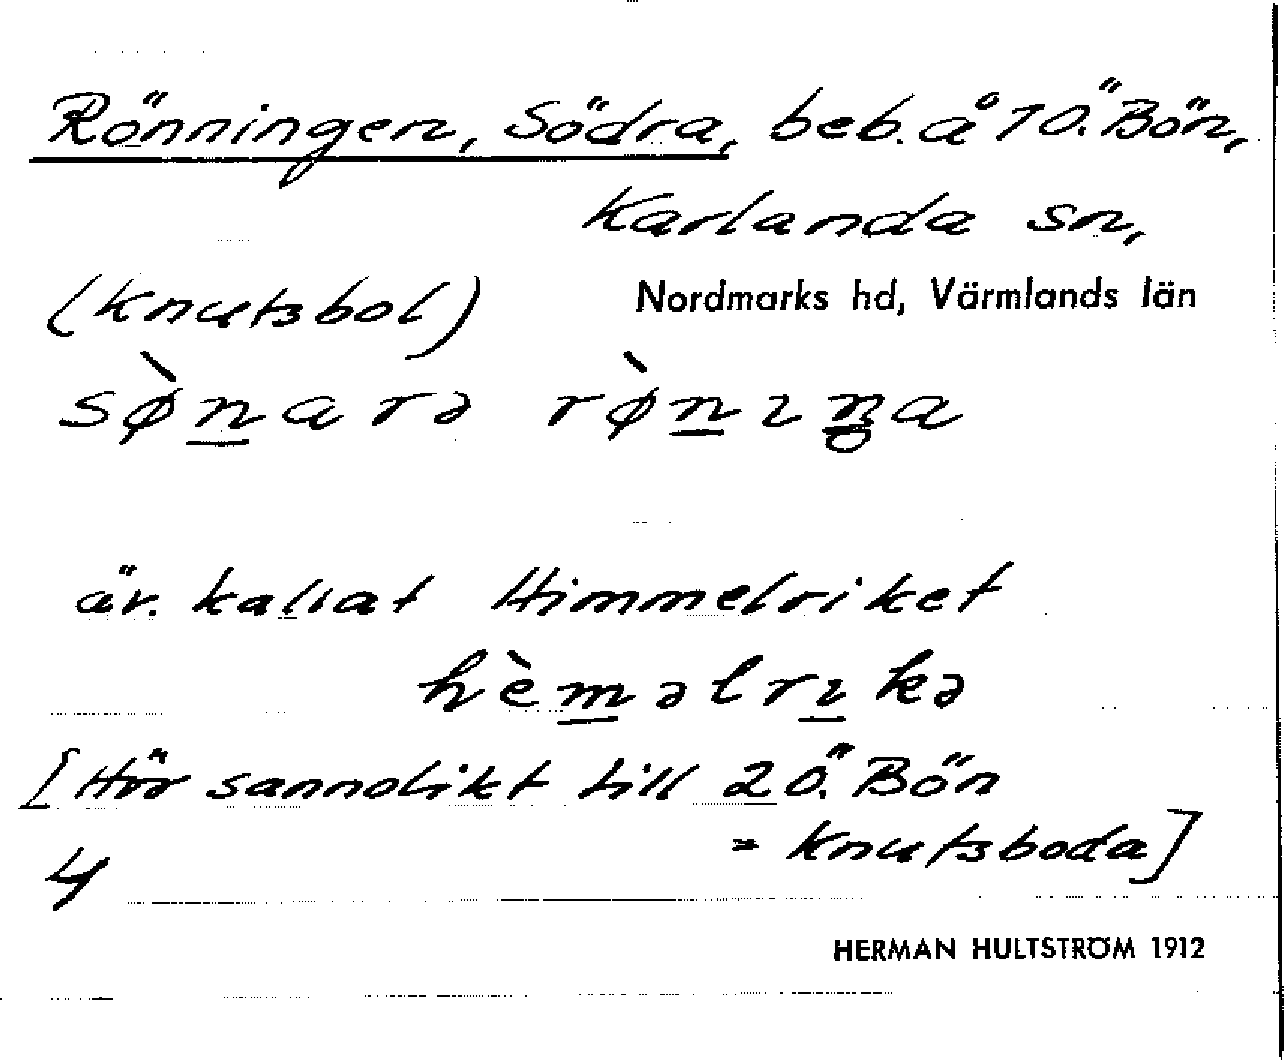 Rönningen, Södra, beb. å 1 Ö. Bön,
Karlanda sn,
(Knutsbol) Nordmarks hd, Värmlands län
sø̀n̲arə rø̀n̲ɪn̲̥a
äv. kallat Himmelriket
hèm̲əlrɪ̲kə
[Hör sannolikt till 2 Ö. Bön
= Knutsboda]
4
HERMAN HULTSTRÖM 1912